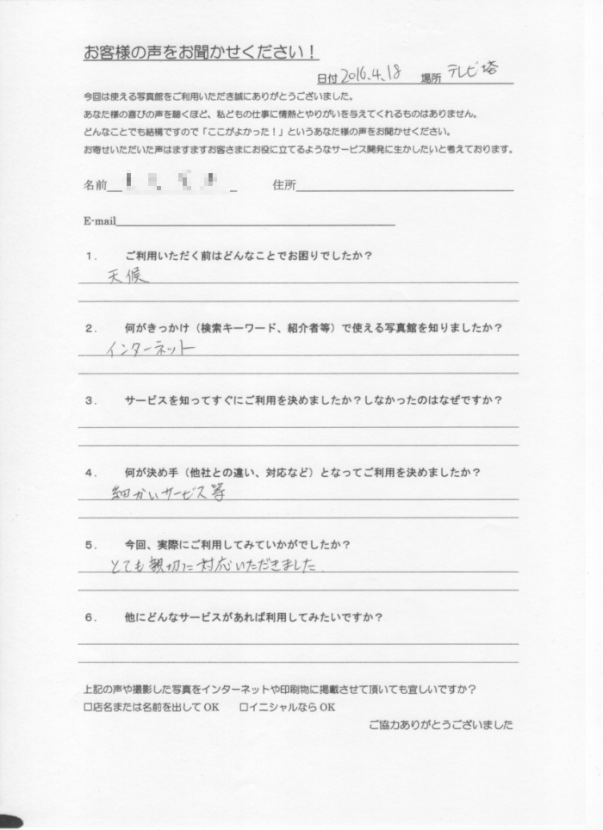 お客様の声をお聞かせください！
日付 2016.4.18 場所 テレビ塔
今回は使える写真館をご利用いただき誠にありがとうございました。
あなた様の喜びの声を聴くほど、私どもの仕事に情熱とやりがいを与えてくれるものはありません。
どんなことでも結構ですので「ここがよかった！」というあなた様の声をお聞かせください。
お寄せいただいた声はますますお客さまにお役に立てるようなサービス開発に生かしたいと考えております。
名前 住所
E-mail
1． ご利用いただく前はどんなことでお困りでしたか？
天候
2． 何がきっかけ（検索キーワード、紹介者等）で使える写真館を知りましたか？
インターネット
3． サービスを知ってすぐにご利用を決めましたか？しなかったのはなぜですか？
4． 何が決め手（他社との違い、対応など）となってご利用を決めましたか？
細かいサービス等
5． 今回、実際にご利用してみていかがでしたか？
とても親切に対応いただきました
6． 他にどんなサービスがあれば利用してみたいですか？
上記の声や撮影した写真をインターネットや印刷物に掲載させて頂いても宜しいですか？
□店名または名前を出して OK □イニシャルなら OK
ご協力ありがとうございました